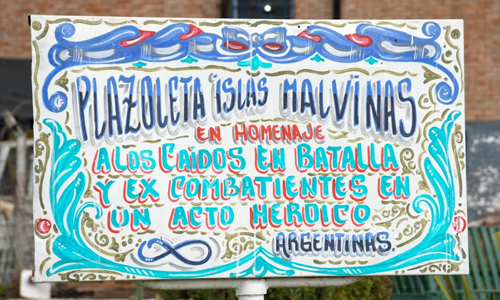 PLAZOLETA ISLAS MALVINAS
EN HOMENAJE
A LOS CAÍDOS EN BATALLA
Y EX COMBATIENTES EN
UN ACTO HEROICO
ARGENTINAS.